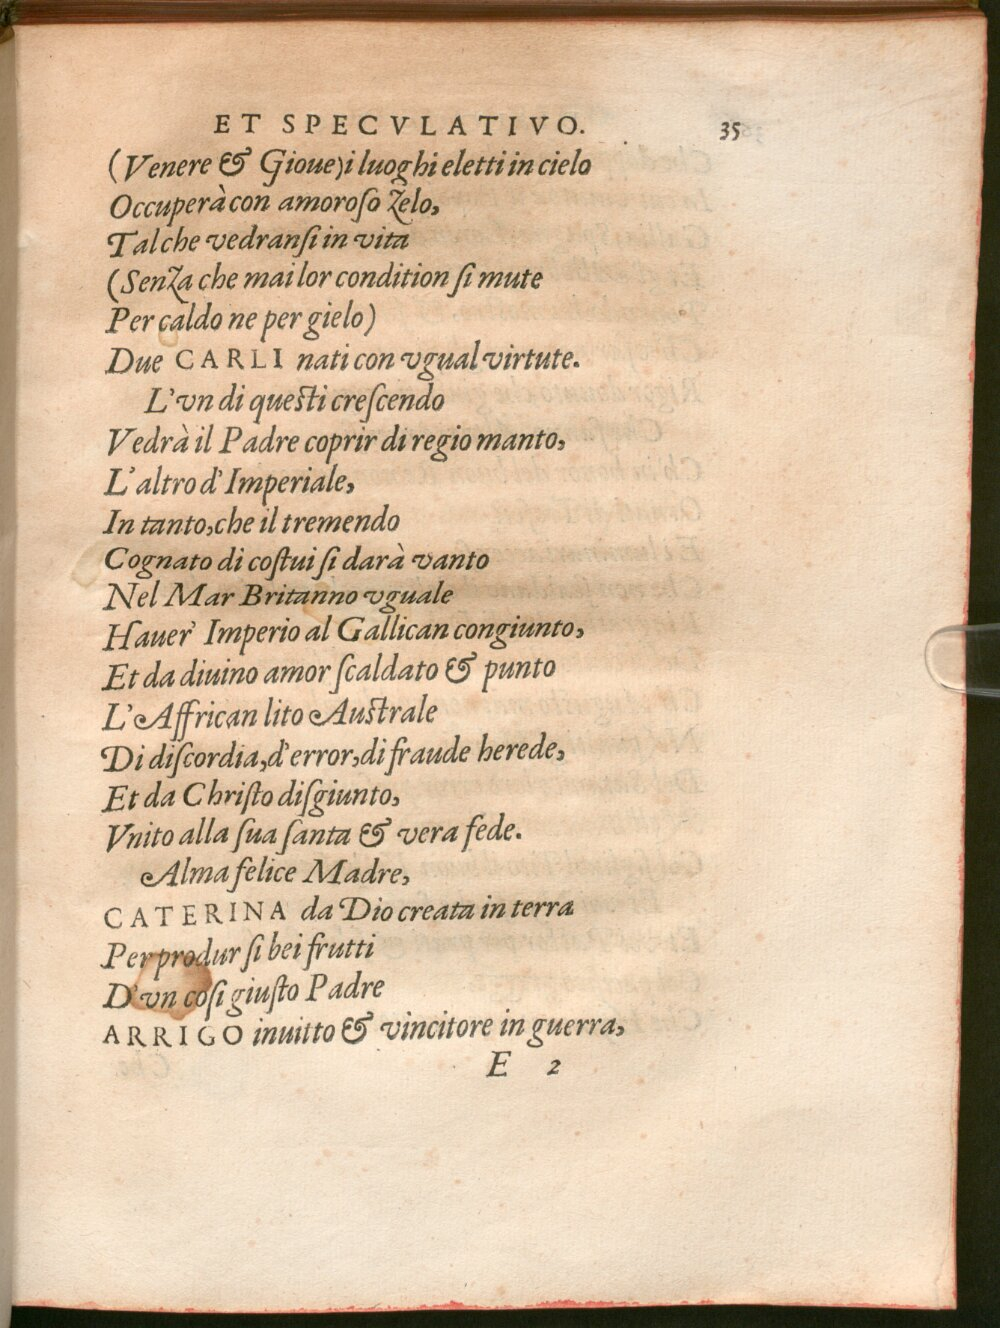 ET SPECVLATIVO. 35
(Venere & Gioue) i luoghi eletti in cielo
Occuperà con amoroso Zelo,
Talche vedransi in vita
(SenZa che mai lor condition si mute
Per caldo ne per gielo)
Due CARLI nati con vgual virtute.
L'vn di questi crescendo
Vedrà il Padre coprir di regio manto,
L'altro d'Imperiale,
In tanto, che il tremendo
Cognato di costui si darà vanto
Nel Mar Britanno vguale
Hauer' Imperio al Gallican congiunto,
Et da diuino amor scaldato & punto
L'Affrican lito Australe
Di discordia, d'error, di fraude herede,
Et da Christo disgiunto,
Vnito alla sua santa & vera fede.
Alma felice Madre,
CATERINA da Dio creata in terra
Per produr si bei frutti
D'vn cosi giusto Padre
ARRIGO inuitto & vincitore in guerra,
E 2